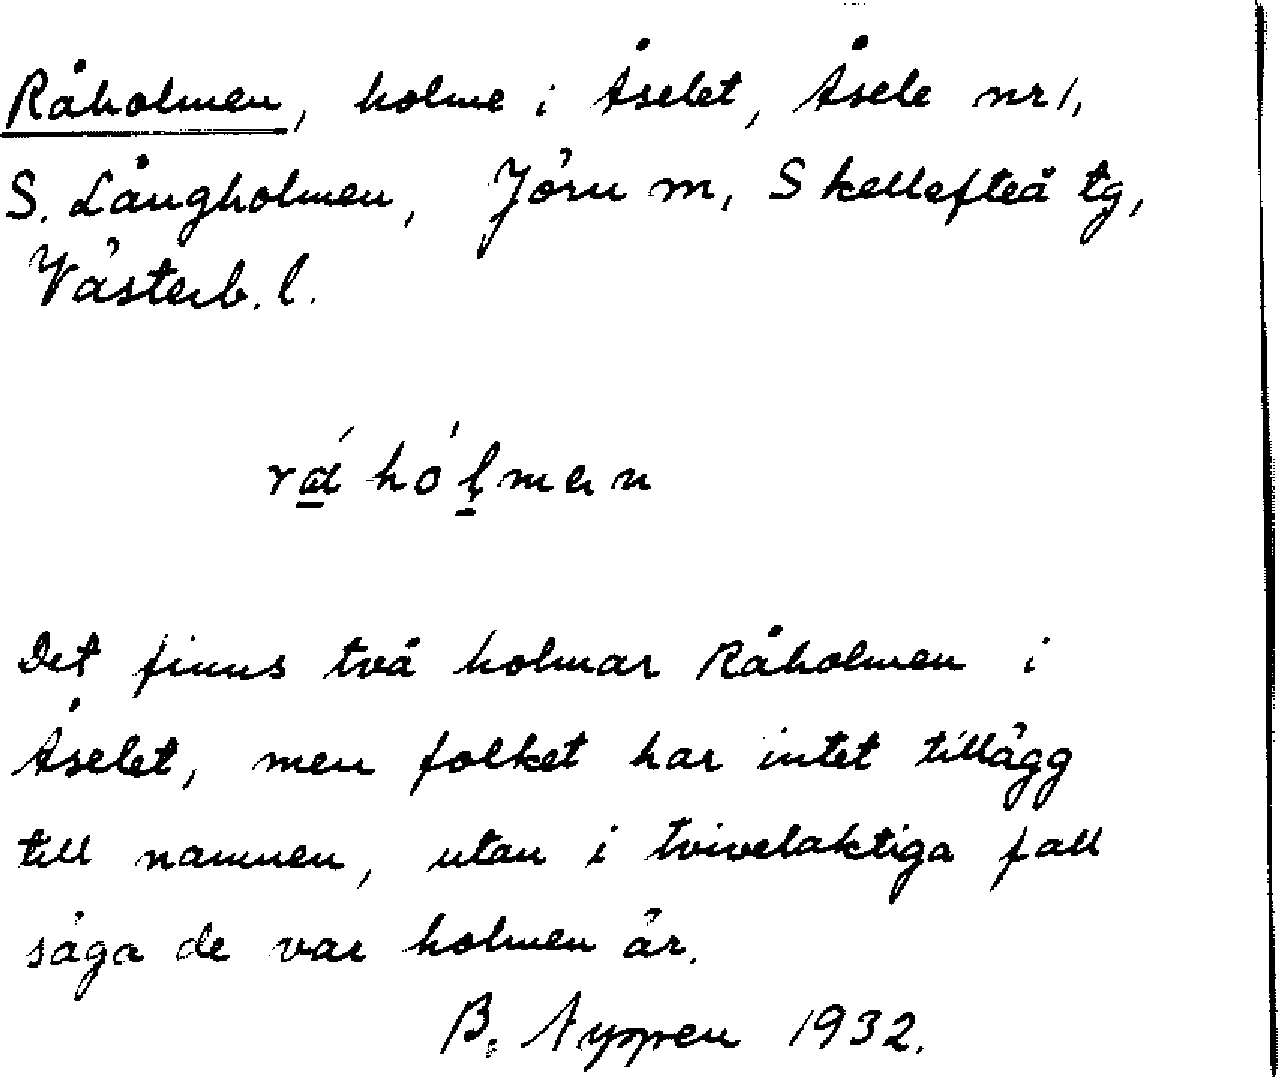 Råholmen, holme i Åselet, Åsele nr 1,
S. Långholmen, Jörn m, Skellefteå tg,
Västerb. l.
rά̲ hó ḷmen
Det finns två holmar Råholmen i
Åselet, men folket har intet tillägg
till namnen, utan i tvivelaktiga fall
säga de var holmen är.
B. 1932.